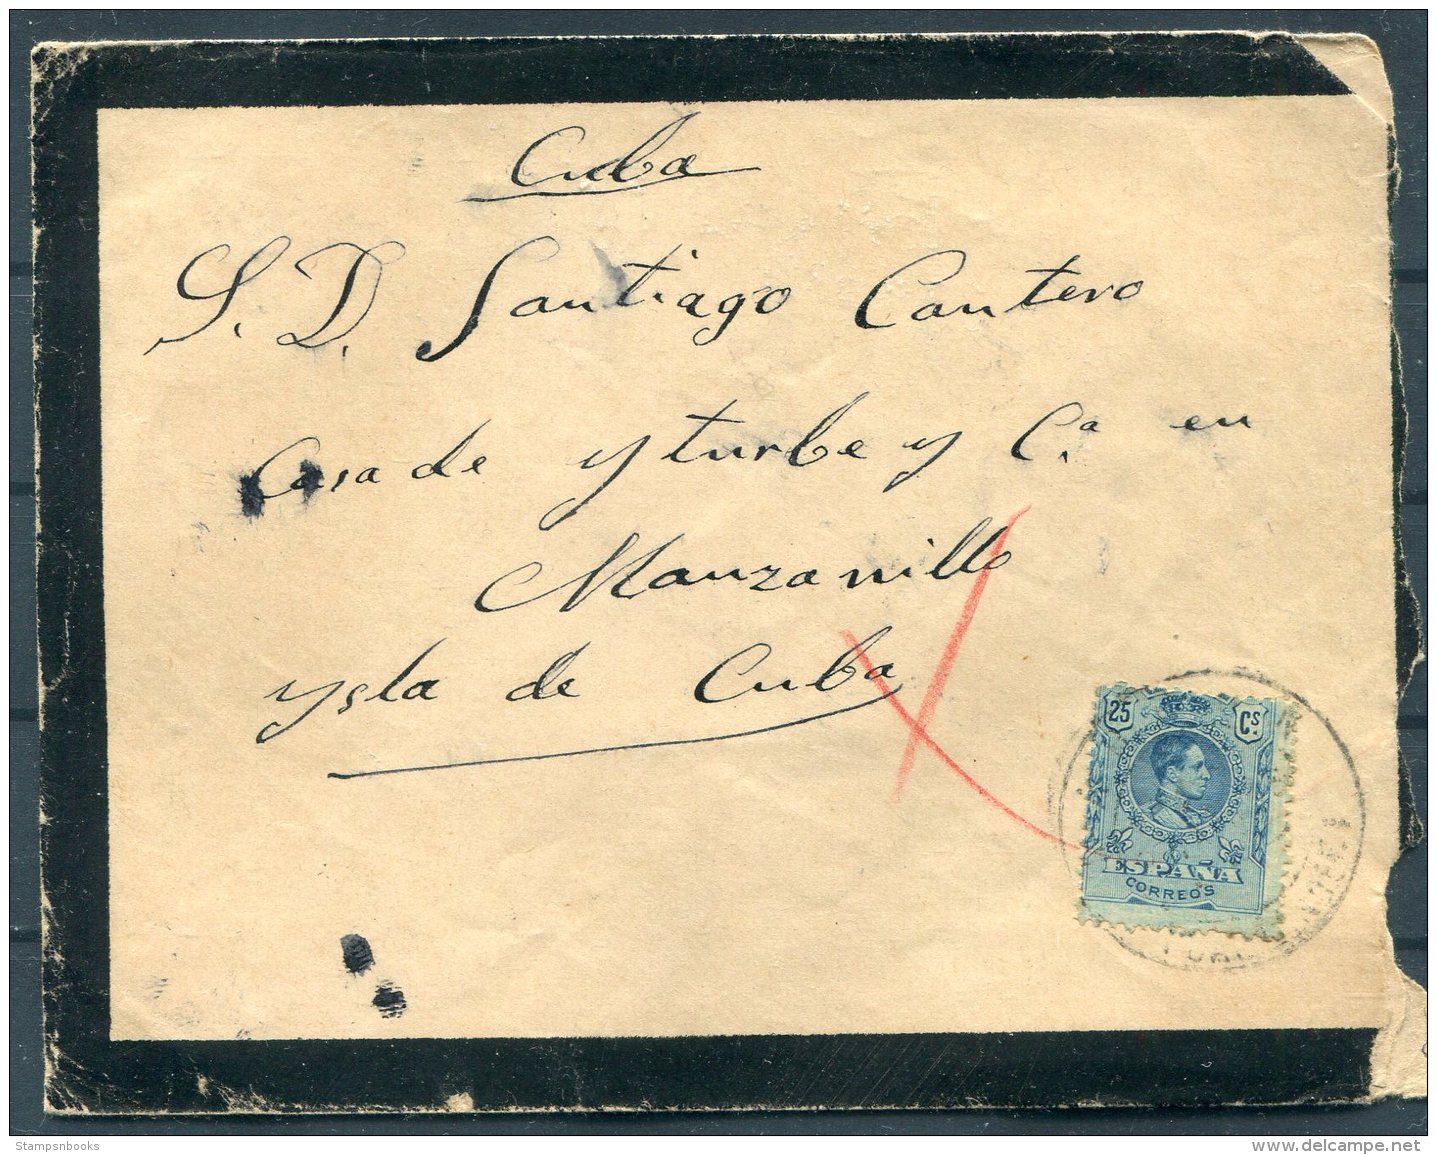 Cuba
S. D. Santiago Cantero
Casa de Yturbe y Cª en
Manzanillo
Ysla de Cuba
25 Cs.
ESPAÑA
CORREOS
Stampsnbooks
www.delcampe.net